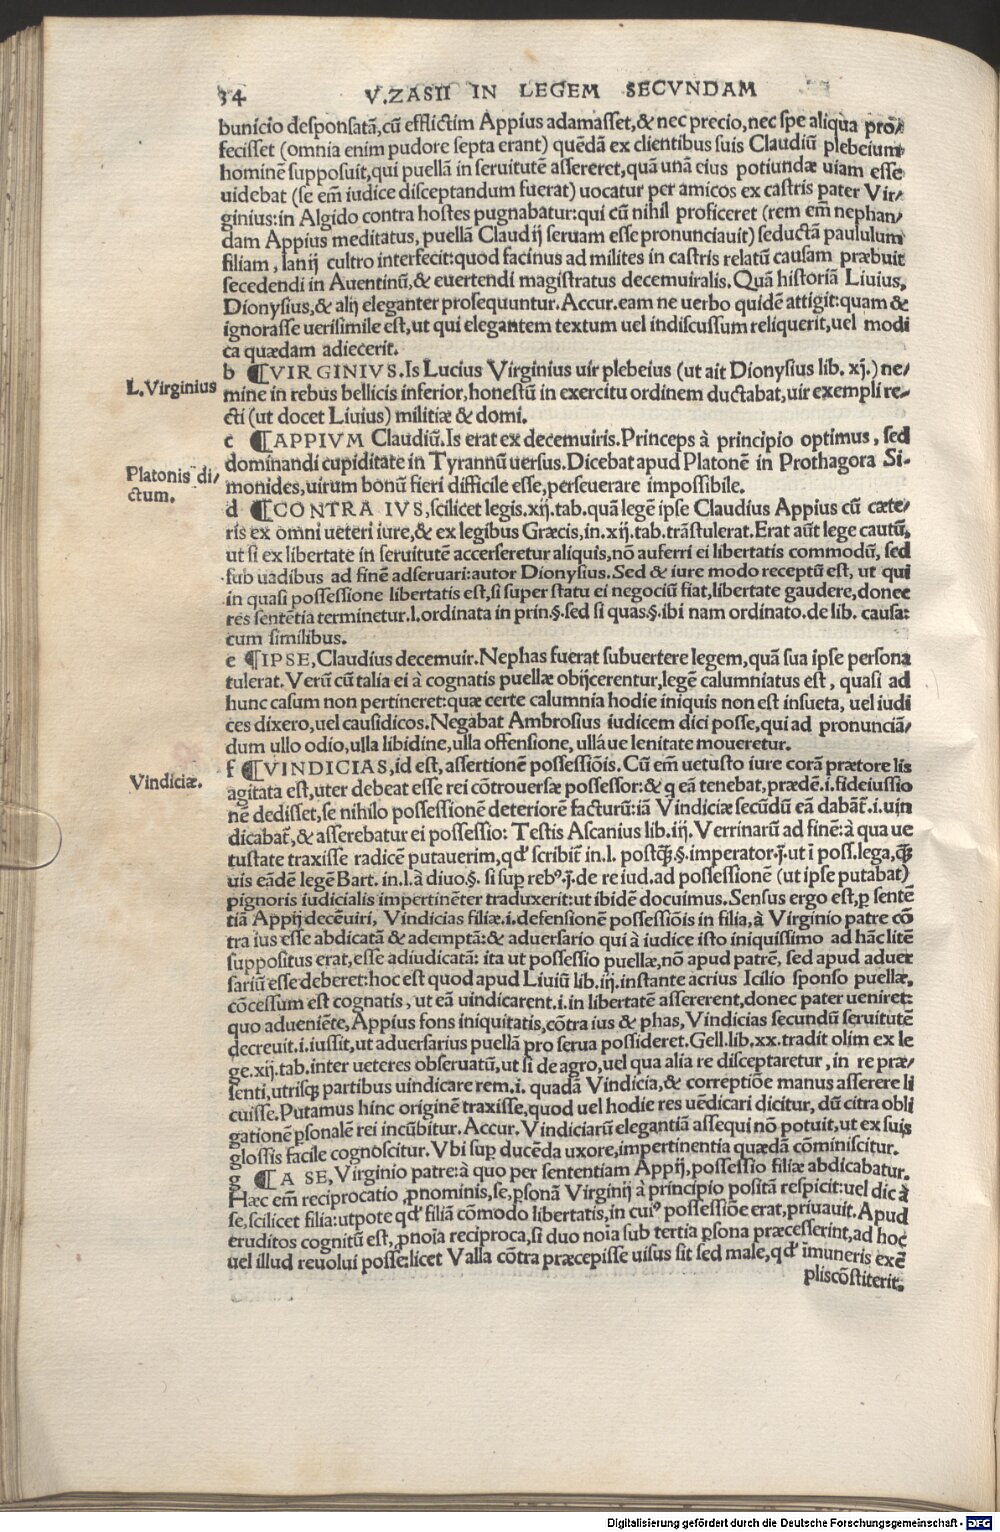 34 V. ZASII IN LEGEM SECVNDAM
bunicio desponsatã, cũ efflictim Appius adamasset, & nec precio, nec spe aliqua pro⸗
fecisset (omnia enim pudore septa erant) quẽdã ex clientibus suis Claudiũ plebeium
hominẽ supposuit, qui puellã in seruitutẽ assereret, quã unã eius potiundæ uiam esse
uidebat (se em̃ iudice disceptandum fuerat) uocatur per amicos ex castris pater Vir⸗
ginius: in Algido contra hostes pugnabatur: qui cũ nihil proficeret (rem em̃ nephan⸗
dam Appius meditatus, puellã Claudij seruam esse pronunciauit) seductã paululum
filiam, lanij cultro interfecit: quod facinus ad milites in castris relatũ causam præbuit
secedendi in Auentinũ, & euertendi magistratus decemuiralis. Quã historiã Liuius,
Dionysius, & alij eleganter prosequuntur. Accur. eam ne uerbo quidẽ attigit: quam &
ignorasse uerisimile est, ut qui elegantem textum uel indiscussum reliquerit, uel modi
ca quædam adiecerit.
b ¶VIRGINIVS. Is Lucius Virginius uir plebeius (ut ait Dionysius lib. xj.) ne⸗
L. Virginius
mine in rebus bellicis inferior, honestũ in exercitu ordinem ductabat, uir exempli re⸗
cti (ut docet Liuius) militiæ & domi.
c ¶APPIVM Claudiũ. Is erat ex decemuiris. Princeps à principio optimus, sed
dominandi cupiditate in Tyrannũ uersus. Dicebat apud Platonẽ in Prothagora Si⸗
Platonis di⸗
ctum.
monides, uirum bonũ fieri difficile esse, perseuerare impossibile.
d ¶CONTRA IVS, scilicet legis. xij. tab. quã legẽ ipse Claudius Appius cũ cæte⸗
ris ex omni ueteri iure, & ex legibus Græcis, in. xij. tab. trãstulerat. Erat aũt lege cautũ,
ut si ex libertate in seruitutẽ accerseretur aliquis, nõ auferri ei libertatis commodũ, sed
sub uadibus ad finẽ adseruari: autor Dionysius. Sed & iure modo receptũ est, ut qui
in quasi possessione libertatis est, si super statu ei negociũ fiat, libertate gaudere, donec
res sentẽtia terminetur. l. ordinata in prin. §. sed si quas. §. ibi nam ordinato. de lib. causa:
cum similibus.
e ¶IPSE, Claudius decemuir. Nephas fuerat subuertere legem, quã sua ipse persona
tulerat. Verũ cũ talia ei à cognatis puellæ obijcerentur, legẽ calumniatus est, quasi ad
hunc casum non pertineret: quæ certe calumnia hodie iniquis non est insueta, uel iudi
ces dixero, uel causidicos. Negabat Ambrosius iudicem dici posse, qui ad pronunciã⸗
dum ullo odio, ulla libidine, ulla offensione, ulláue lenitate moueretur.
f ¶VINDICIAS, id est, assertionẽ possessiõis. Cũ em̃ uetusto iure corã prætore lis
Vindiciæ.
agitata est, uter debeat esse rei cõtrouersæ possessor: & q eã tenebat, prædẽ. i. fideiussio
nẽ dedisset, se nihilo possessionẽ deteriorẽ facturũ: iã Vindiciæ secũdũ eã dabãt̃. i. uin
dicabat̃, & asserebatur ei possessio: Testis Ascanius lib. iij. Verrinarũ ad finẽ: à qua ue
tustate traxisse radicẽ putauerim, qď scribit̃ in. l. postq̃. §. imperator. J. ut ĩ poss. lega, q̃
uis eãdẽ legẽ Bart. in. l. à diuo. §. si sup rebꝰ. J. de re iud. ad possessionẽ (ut ipse putabat)
pignoris iudicialis impertinẽter traduxerit: ut ibidẽ docuimus. Sensus ergo est, ꝑ sentẽ
tiã Appij decẽuiri, Vindicias filiæ. i. defensionẽ possessiõis in filia, à Virginio patre cõ
tra ius esse abdicatã & ademptã: & aduersario qui à iudice isto iniquissimo ad hãc litẽ
suppositus erat, esse adiudicatã: ita ut possessio puellæ, nõ apud patrẽ, sed apud aduer
sariũ esse deberet: hoc est quod apud Liuiũ lib. iij. instante acrius Icilio sponso puellæ,
cõcessum est cognatis, ut eã uindicarent. i. in libertatẽ assererent, donec pater ueniret:
quo adueniẽte, Appius fons iniquitatis, cõtra ius & phas, Vindicias secundũ seruitutẽ
decreuit. i. iussit, ut aduersarius puellã pro serua possideret. Gell. lib. xx. tradit olim ex le
ge. xij. tab. inter ueteres obseruatũ, ut si de agro, uel qua alia re disceptaretur, in re præ⸗
senti, utrisq; partibus uindicare rem. i. quadã Vindicia, & correptiõe manus asserere li
cuisse. Putamus hinc originẽ traxisse, quod uel hodie res uẽdicari dicitur, dũ citra obli
gationẽ ꝑsonalẽ rei incũbitur. Accur. Vindiciarũ elegantiã assequi nõ potuit, ut ex suis
glossis facile cognoscitur. Vbi sup ducẽda uxore, impertinentia quædã cõminiscitur.
g ¶A SE, Virginio patre: à quo per sententiam Appij, possessio filiæ abdicabatur.
Hæc em̃ reciprocatio ꝓnominis, se, ꝑsonã Virginij à principio positã respicit: uel dic à
se, scilicet filia: utpote qď filiã cõmodo libertatis, in cuiꝰ possessiõe erat, priuauit. Apud
eruditos cognitũ est, ꝓnoĩa reciproca, si duo noĩa sub tertia ꝑsona præcesserint, ad hoc
uel illud reuolui posse: licet Valla cõtra præcepisse uisus sit sed male, qď ĩmuneris exẽ
plis cõstiterit.
Digitalisierung gefördert durch die Deutsche Forschungsgemeinschaft - DFG